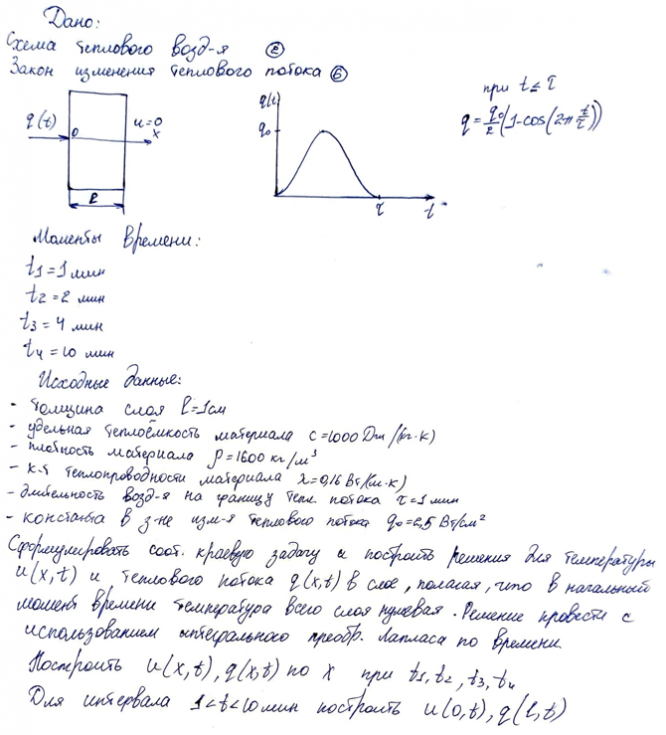 Дано:
Схема теплового возд-я ②
Закон изменения теплового потока ⑥
при t ≤ τ
q = q₀/2 (1-cos(2π t/τ))
q(t)
0
u=0
x
l
q(t)
q₀
τ
t
Моменты времени:
t₁ = 1 мин
t₂ = 2 мин
t₃ = 4 мин
t₄ = 10 мин
Исходные данные:
- толщина слоя l=1см
- удельная теплоёмкость материала c=1000 Дж/(кг·К)
- плотность материала ρ=1600 кг/м³
- к-т теплопроводности материала λ=0,16 Вт/(м·К)
- длительность возд-я на границу тепл. потока τ=1 мин
- константа в з-не изм-я теплового потока q₀=2,5 Вт/см²
Сформулировать соот. краевую задачу и построить решения для температуры
u(x,t) и теплового потока q(x,t) в слое, полагая, что в начальный
момент времени температура всего слоя нулевая. Решение провести с
использованием интегрального преобр. Лапласа по времени.
Построить u(x,t), q(x,t) по x при t₁, t₂, t₃, t₄
Для интервала 1<t<10мин построить u(0,t), q(l,t)